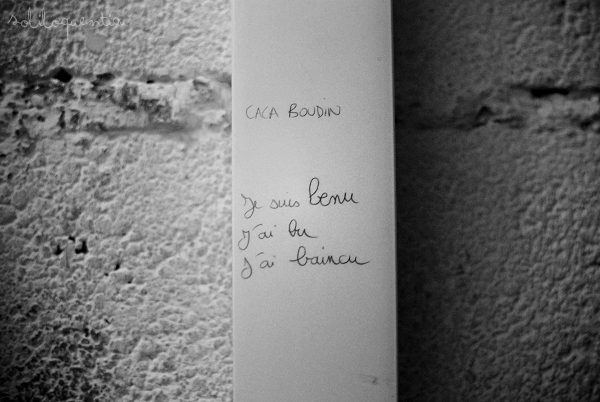 soliloquentia
CACA BOUDIN
Je suis benu
J'ai bu
J'ai baincu